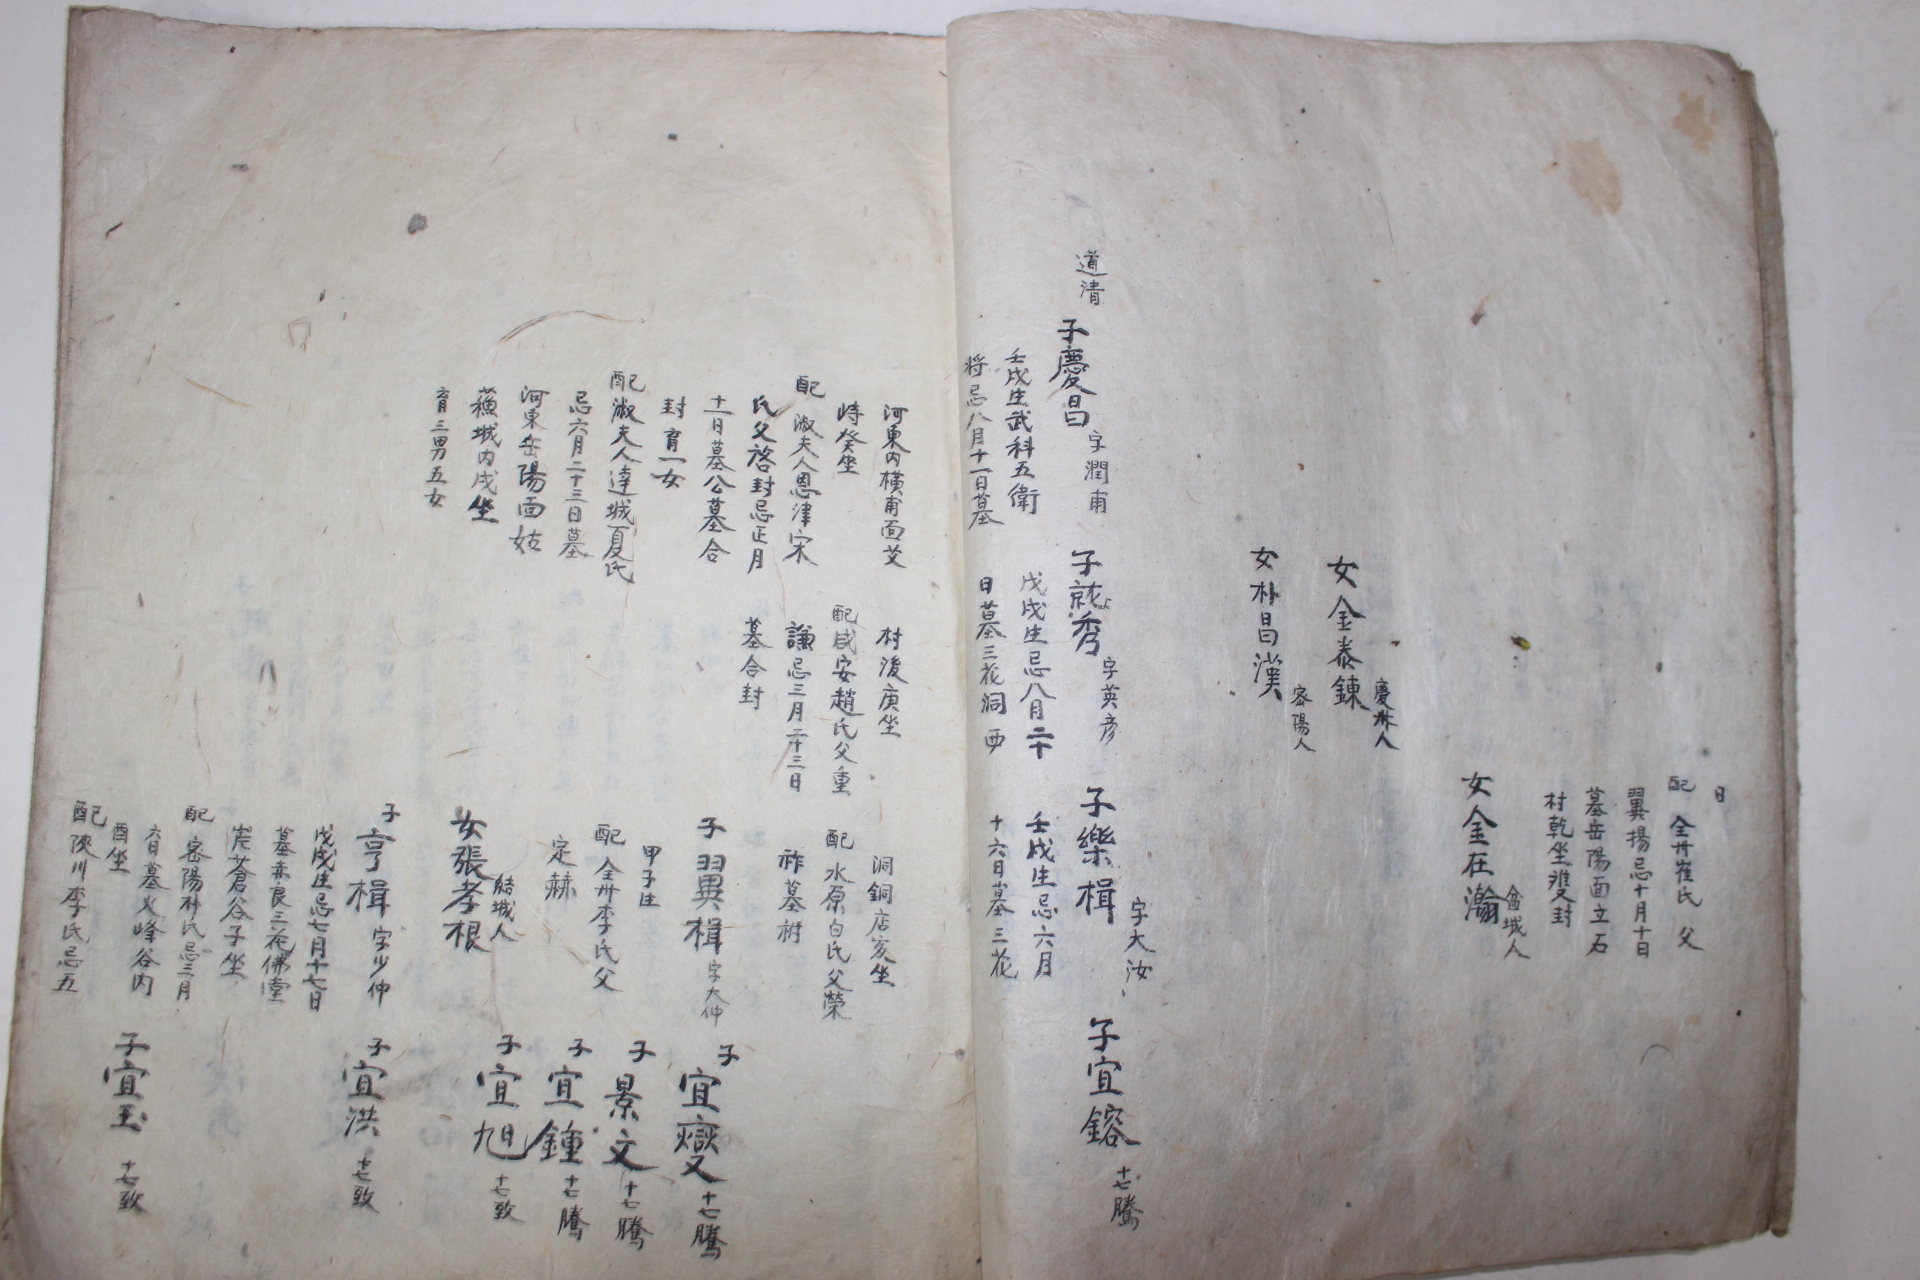 日
配 全州崔氏 父
翼揚忌十月十日
墓岳陽面立石
村乾坐雙封
女金在瀚
盆城人
女金泰鍊
慶州人
女朴昌漢
密陽人
道清
子慶昌
字潤甫
壬戌生武科五衛
將忌八月十一日墓
子就秀
字英彦
戊戌生忌八月二十
日墓三花洞西
子樂楫
字大汝
壬戌生忌六月
十六日墓三花
子宜鎔
十七騰
河東內橫甫面艾
峙癸坐
配 淑夫人恩津宋
氏父啓封忌正月
十一日墓公墓合
封育一女
配淑夫人達城夏氏
忌六月二十三日墓
河東岳陽面姑
蘓城內戌坐
育三男五女
村後庚坐
配咸安趙氏父重
謙忌三月二十三日
墓合封
洞銅店亥坐
配水原白氏父榮
祚墓祔
子翼楫
字大仲
甲子生
配全州李氏父
定赫
女張孝根
結城人
子亨楫
字少仲
戊戌生忌七月十七日
墓赤良三花佛堂
岸蒼谷子坐
配密陽朴氏忌三月
六日墓火峰谷內
酉坐
配陜川李氏忌五
子宜燮
十七騰
子景文
十七騰
子宜鍾
十七騰
子宜旭
十七致
子宜洪
十七致
子宜玉
十七致